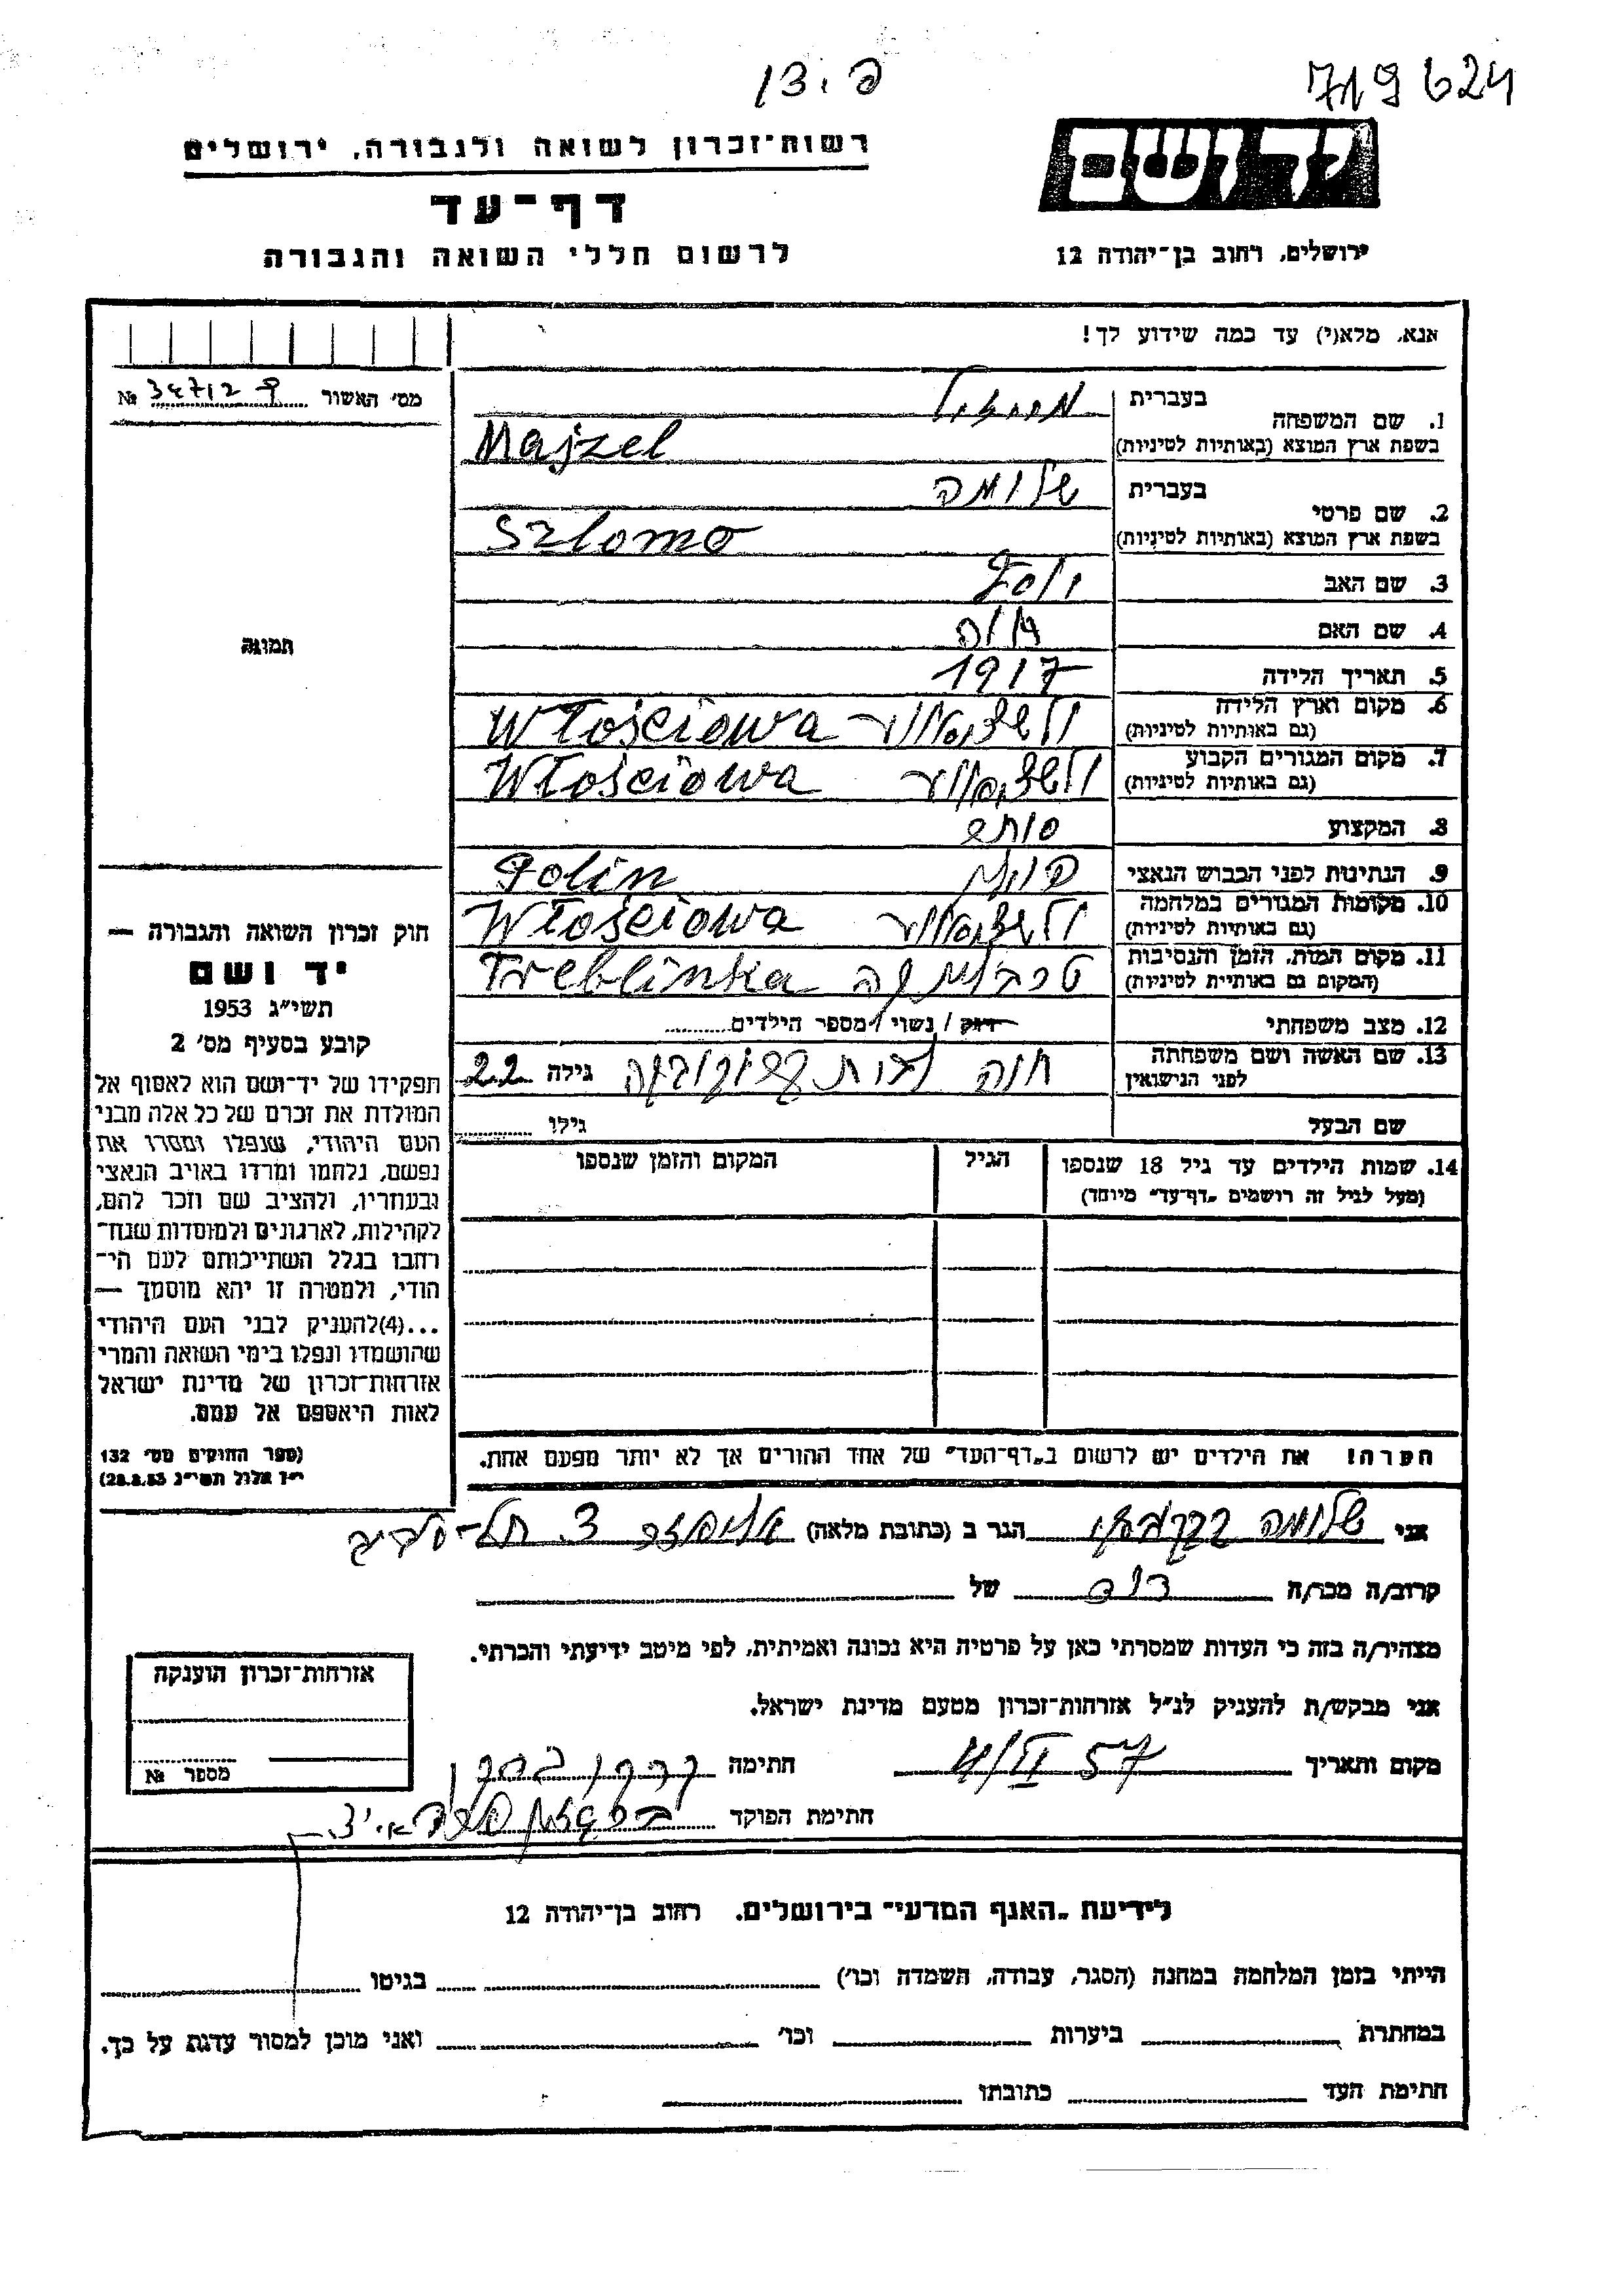 719624
פ. צו
יד ושם
רשות־זכרון לשואה ולגבורה, ירושלים
דף־עד
לרשום חללי השואה והגבורה
ירושלים, רחוב בן־יהודה 12
אנא, מלא(י) עד כמה שידוע לך!
מס׳ האשור № 34712 9
1. שם המשפחה
בעברית
בשפת ארץ המוצא (באותיות לטיניות) Majzel
2. שם פרטי
בעברית שלומה
בשפת ארץ המוצא (באותיות לטיניות) Szlomo
3. שם האב יוסף
4. שם האם
5. תאריך הלידה 1917
6. מקום וארץ הלידה
(גם באותיות לטיניות) Włościowa
7. מקום המגורים הקבוע
(גם באותיות לטיניות) Włościowa
8. המקצוע סוחר
9. הנתינות לפני הכבוש הנאצי פולין Polin
10. מקומות המגורים במלחמה
(גם באותיות לטיניות) Włościowa
11. מקום המות, הזמן והנסיבות
(המקום גם באותיות לטיניות) טרבלינקה Treblinka
12. מצב משפחתי רווק / נשוי / מספר הילדים
13. שם האשה ושם משפחתה
לפני הנישואין חנה לבית גילה 22
שם הבעל גילו
14. שמות הילדים עד גיל 18 שנספו
(מעל לגיל זה רושמים „דף־עד” מיוחד)
הגיל
המקום והזמן שנספו
הערה! את הילדים יש לרשום ב„דף־העד” של אחד ההורים אך לא יותר מפעם אחת.
תמונה
חוק זכרון השואה והגבורה —
יד ושם
תשי״ג 1953
קובע בסעיף מס׳ 2
תפקידו של יד־ושם הוא לאסוף אל
המולדת את זכרם של כל אלה מבני
העם היהודי, שנפלו ומסרו את
נפשם, נלחמו ומרדו באויב הנאצי
ובעוזריו, ולהציב שם וזכר להם,
לקהילות, לארגונים ולמוסדות שנח־
רבו בגלל השתייכותם לעם הי־
הודי, ולמטרה זו יהא מוסמך —
...(4)להעניק לבני העם היהודי
שהושמדו ונפלו בימי השואה והמרי
אזרחות־זכרון של מדינת ישראל
לאות היאספם אל עמם.
(ספר החוקים מס׳ 132
י״ז אלול תשי״ג 28.8.53)
אני שלומה הגר ב (כתובת מלאה) תל־אביב
קרוב/ה מכר/ה דוד של
מצהיר/ה בזה כי העדות שמסרתי כאן על פרטיה היא נכונה ואמיתית, לפי מיטב ידיעתי והכרתי.
אני מבקש/ת להעניק לנ״ל אזרחות־זכרון מטעם מדינת ישראל.
מקום ותאריך 4/II 57 חתימה
חתימת הפוקד
אזרחות־זכרון הוענקה
מספר №
לידיעת „האגף המדעי” בירושלים, רחוב בן־יהודה 12
הייתי בזמן המלחמה במחנה (הסגר, עבודה, השמדה וכו׳) בגיטו
במחתרת ביערות וכו׳ ואני מוכן למסור עדות על כך.
חתימת העד כתובתו